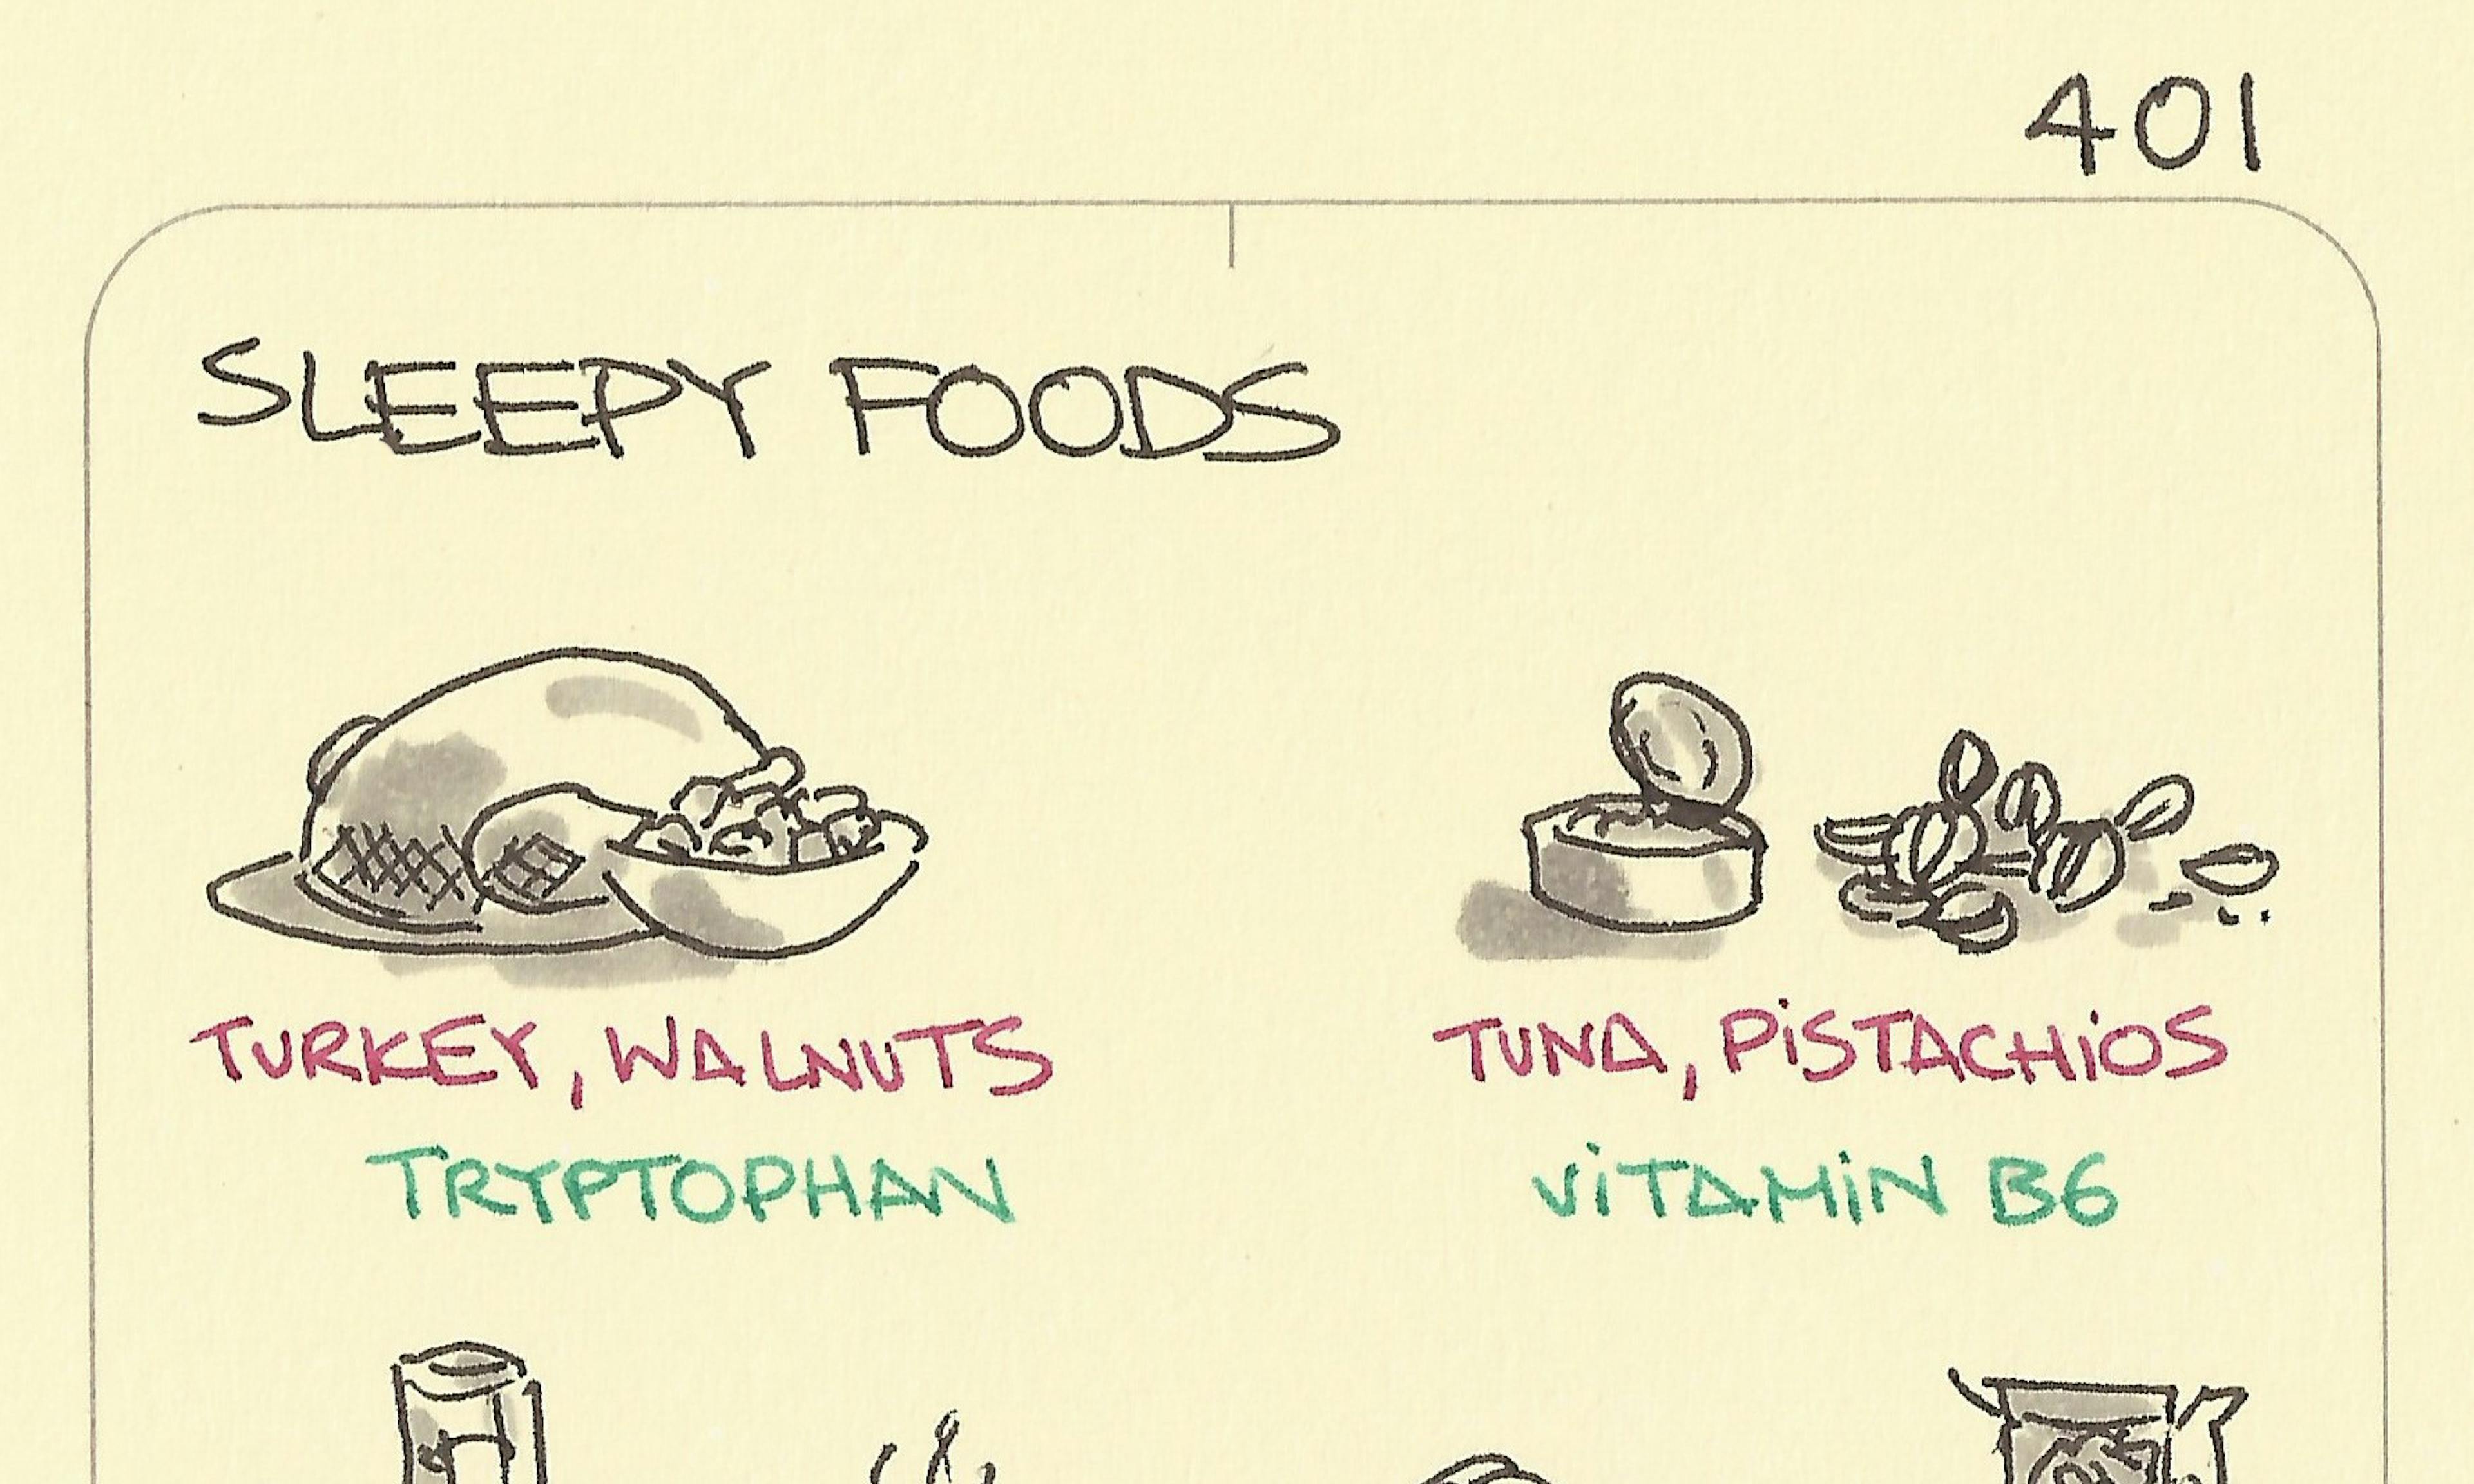 401
SLEEPY FOODS
TURKEY, WALNUTS
TRYPTOPHAN
TUNA, PiSTACHiOS
ViTAMiN B6